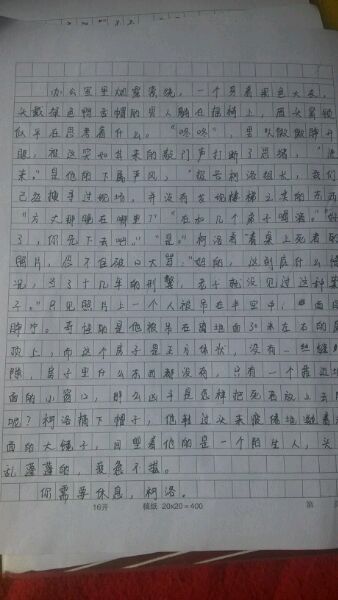 办公室里烟雾萦绕，一个身着黑色大衣，
头戴棕色鸭舌帽的男人躺在摇椅上，眉头紧锁
似乎在思考着什么。“咚咚”，里
眼，被这突如其来的敲门声打断了思绪，“进
来。”是他的下属严风，“报告柯洛组长，我们
已经搜寻过现场，并没有发现楼梯之类的东西
“方大师现在哪里？”“在加几个房子喝酒。”“好
了，你先下去吧。”“是。”柯洛看着桌上死者的
照片，忍不住破口大骂：“妈的，这到底什么情
况，当了十几年的刑警，老子就没见过这种案
子。”只见照片上一个人被吊在半空中，面目
狰狞。奇怪的是他被吊在离地面30米左右的房
顶上，而这个房子是正方体状，没有一丝缝
隙，房子里什么东西都没有，只有一个靠近地
面的小窗口，那么凶手是怎样把死者放上去
呢？柯洛摘下帽子，他转过头来疲倦地瞅着
面的大镜子，回望着他的是一个陌生人，头
乱蓬蓬的，疲惫不堪。
你需要休息，柯洛。
16开 稿纸 20×20=400 第